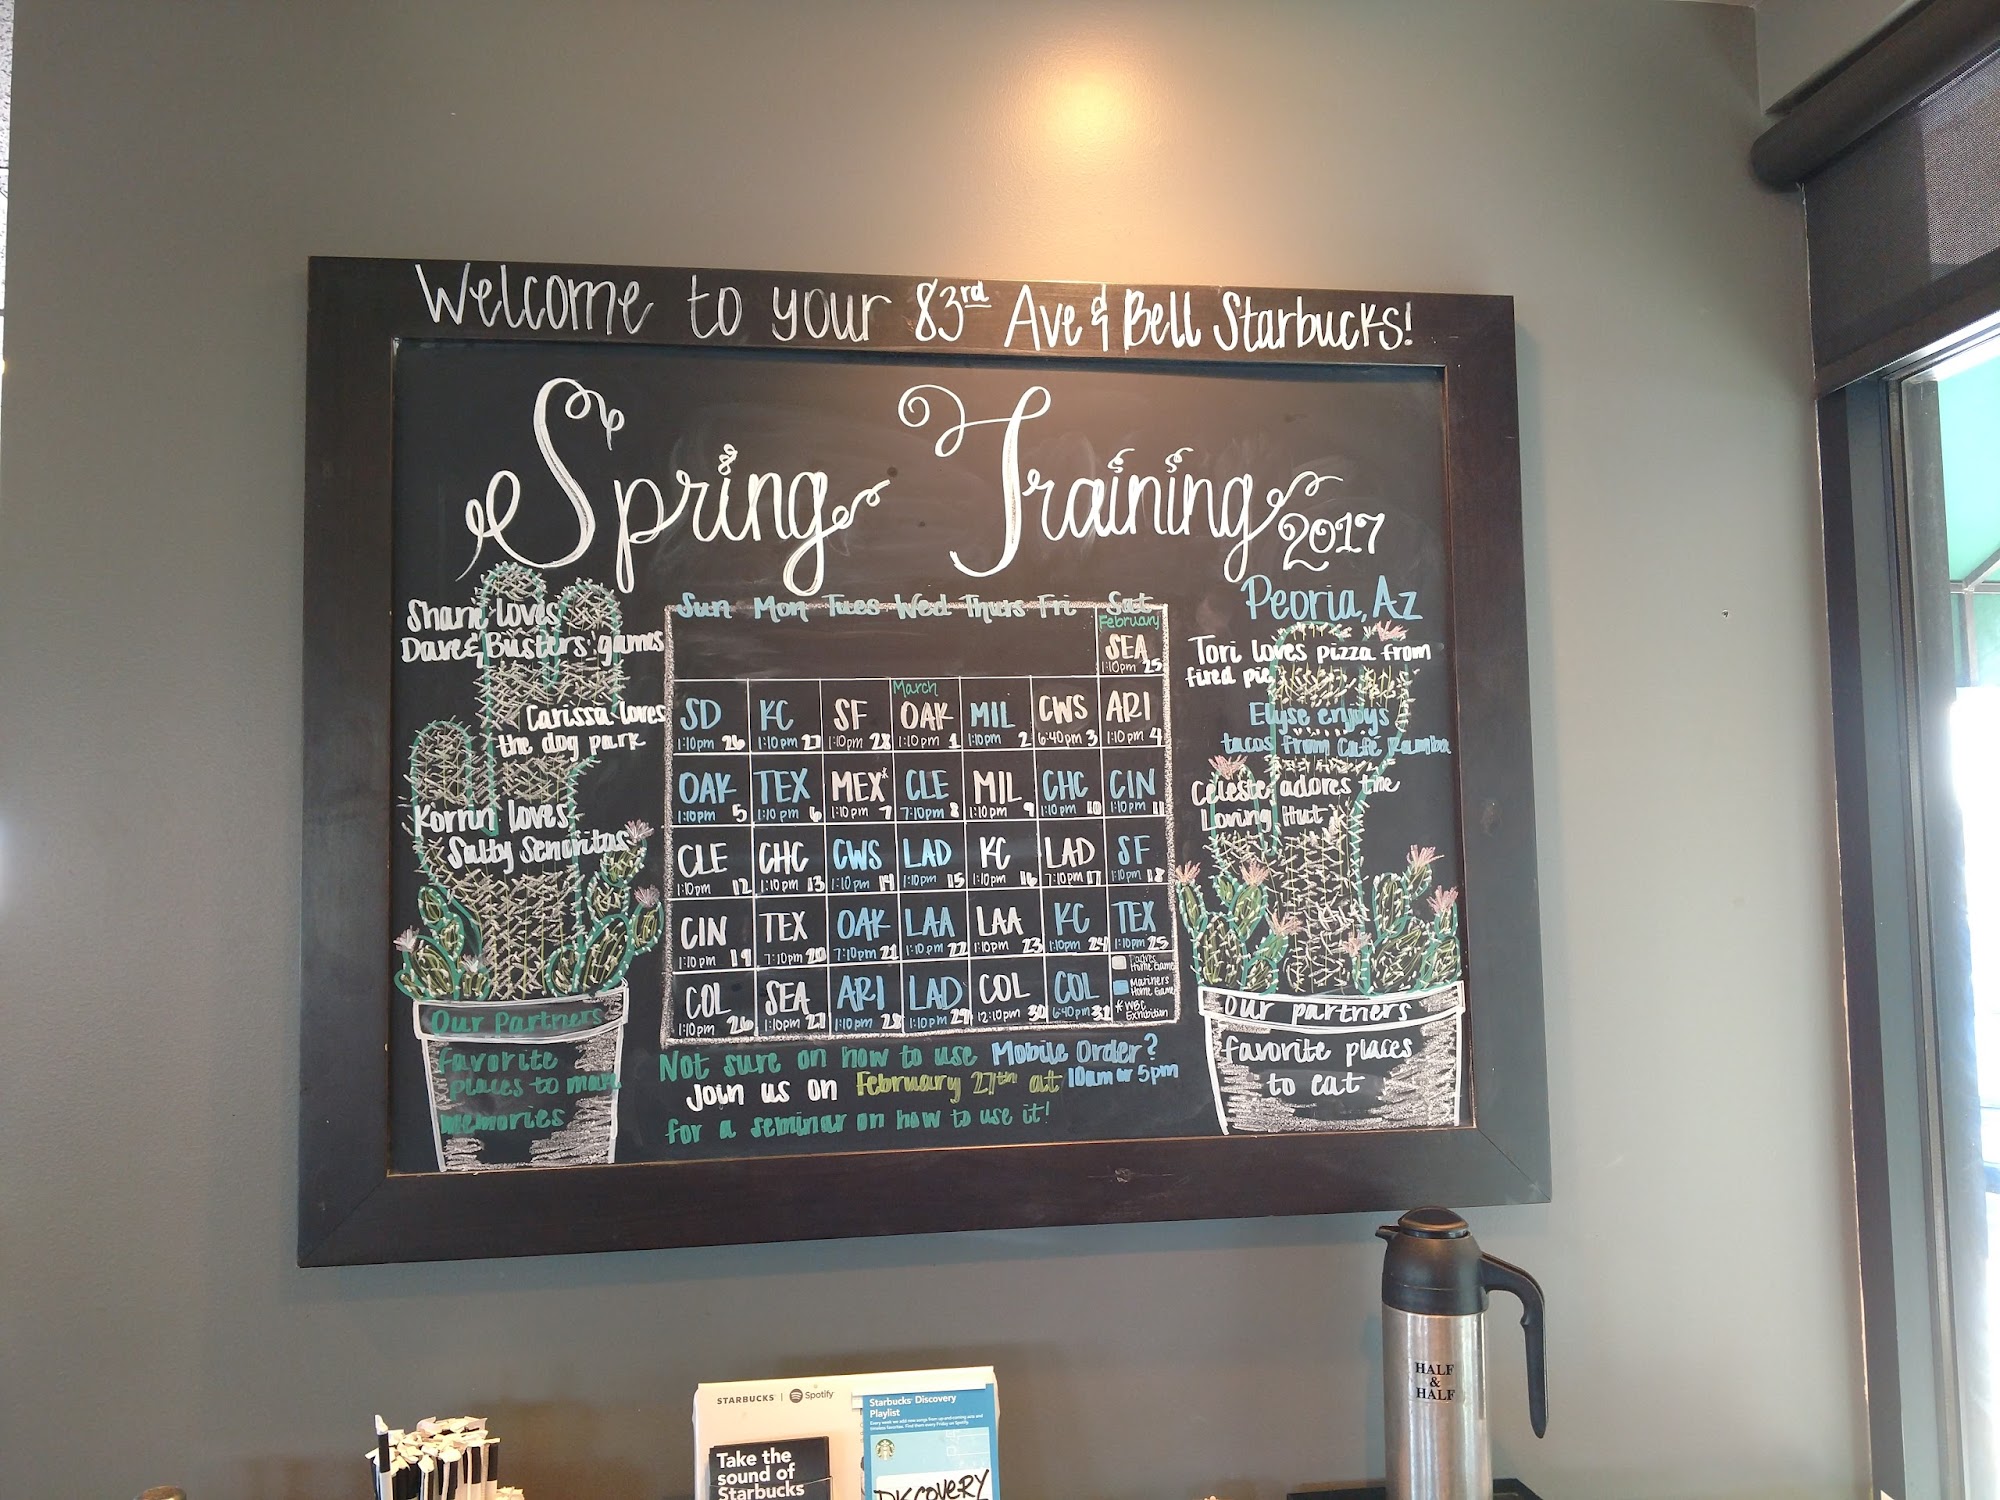 Welcome to your 83rd Ave & Bell Starbucks!
Spring Training 2017
Peoria, Az
Shane loves
Dave & Busters' games
Carissa loves
the dog park
Korrin loves
Salty Senoritas
Our Partners
favorite
places to make
memories
Sun Mon Tues Wed Thurs Fri Sat
February
SEA
1:10pm 25
March
SD KC SF OAK MIL CWS ARI
1:10pm 26 1:10pm 27 1:10pm 28 1:10pm 1 1:10pm 2 6:40pm 3 1:10pm 4
OAK TEX MEX* CLE MIL CHC CIN
1:10pm 5 1:10pm 6 1:10pm 7 7:10pm 8 1:10pm 9 1:10pm 10 1:10pm 11
CLE CHC CWS LAD KC LAD SF
1:10pm 12 1:10pm 13 1:10pm 14 1:10pm 15 1:10pm 16 7:10pm 17 1:10pm 18
CIN TEX OAK LAA LAA KC TEX
1:10pm 19 7:10pm 20 7:10pm 21 1:10pm 22 1:10pm 23 1:10pm 24 1:10pm 25
COL SEA ARI LAD COL COL
1:10pm 26 1:10pm 27 1:10pm 28 1:10pm 29 12:10pm 30 6:40pm
Padres
Home Game
Mariners
Home Game
* WBC
Exhibition
Not sure on how to use Mobile Order?
Join us on February 27th at 10am or 5pm
for a seminar on how to use it!
Tori loves pizza from
fired pie
Elyse enjoys
tacos from Café
Celeste adores the
Loving Hut
our partners
favorite places
to eat
HALF
&
HALF
STARBUCKS | Spotify
Take the
sound of
Starbucks
Starbucks Discovery
Playlist
DISCOVERY